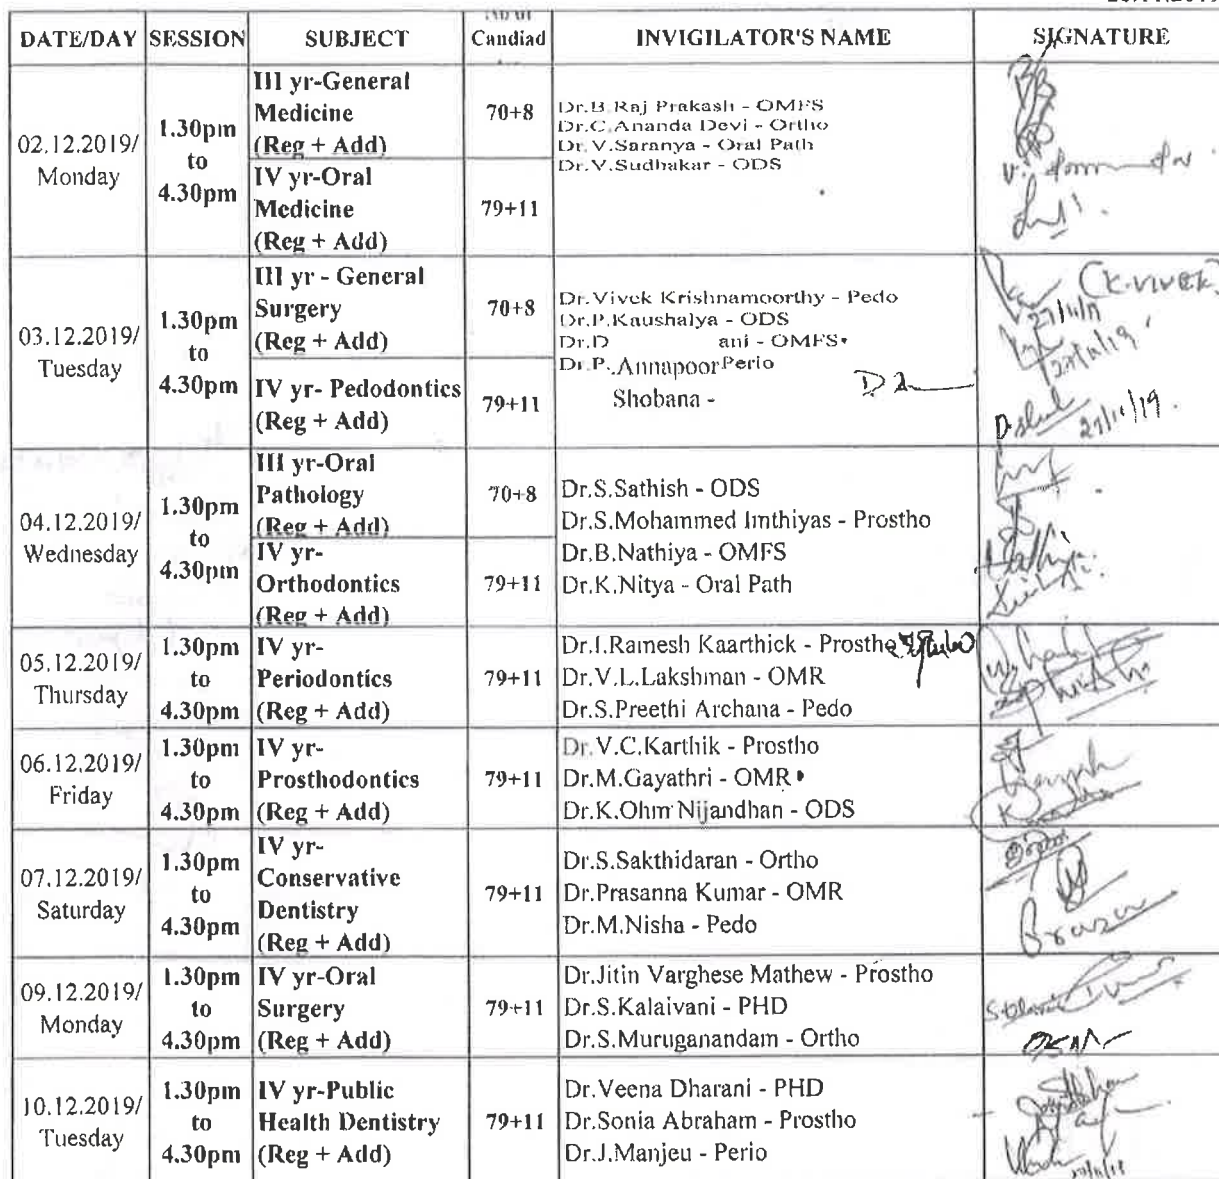 DATE/DAY SESSION SUBJECT Candiad INVIGILATOR'S NAME SIGNATURE
02.12.2019/
Monday
1.30pm
to
4.30pm
III yr-General
Medicine
(Reg + Add)
70+8
IV yr-Oral
Medicine
(Reg + Add)
79+11
Dr.B.Raj Prakash - OMFS
Dr.C.Ananda Devi - Ortho
Dr.V.Saranya - Oral Path
Dr.V.Sudhakar - ODS
03.12.2019/
Tuesday
1.30pm
to
4.30pm
III yr - General
Surgery
(Reg + Add)
70+8
IV yr- Pedodontics
(Reg + Add)
79+11
Dr.Vivek Krishnamoorthy - Pedo
Dr.P.Kaushalya - ODS
Dr.D ani - OMFS
Dr.P. Annapoor Perio
Shobana -
(K.VIVEK)
27/11/19
27/11/19
27/11/19.
04.12.2019/
Wednesday
1.30pm
to
4.30pm
III yr-Oral
Pathology
(Reg + Add)
70+8
IV yr-
Orthodontics
(Reg + Add)
79+11
Dr.S.Sathish - ODS
Dr.S.Mohammed Imthiyas - Prostho
Dr.B.Nathiya - OMFS
Dr.K.Nitya - Oral Path
05.12.2019/
Thursday
1.30pm
to
4.30pm
IV yr-
Periodontics
(Reg + Add)
79+11
Dr.I.Ramesh Kaarthick - Prostho
Dr.V.L.Lakshman - OMR
Dr.S.Preethi Archana - Pedo
06.12.2019/
Friday
1.30pm
to
4.30pm
IV yr-
Prosthodontics
(Reg + Add)
79+11
Dr.V.C.Karthik - Prostho
Dr.M.Gayathri - OMR
Dr.K.Ohm Nijandhan - ODS
07.12.2019/
Saturday
1.30pm
to
4.30pm
IV yr-
Conservative
Dentistry
(Reg + Add)
79+11
Dr.S.Sakthidaran - Ortho
Dr.Prasanna Kumar - OMR
Dr.M.Nisha - Pedo
09.12.2019/
Monday
1.30pm
to
4.30pm
IV yr-Oral
Surgery
(Reg + Add)
79+11
Dr.Jitin Varghese Mathew - Prostho
Dr.S.Kalaivani - PHD
Dr.S.Muruganandam - Ortho
10.12.2019/
Tuesday
1.30pm
to
4.30pm
IV yr-Public
Health Dentistry
(Reg + Add)
79+11
Dr.Veena Dharani - PHD
Dr.Sonia Abraham - Prostho
Dr.J.Manjeu - Perio